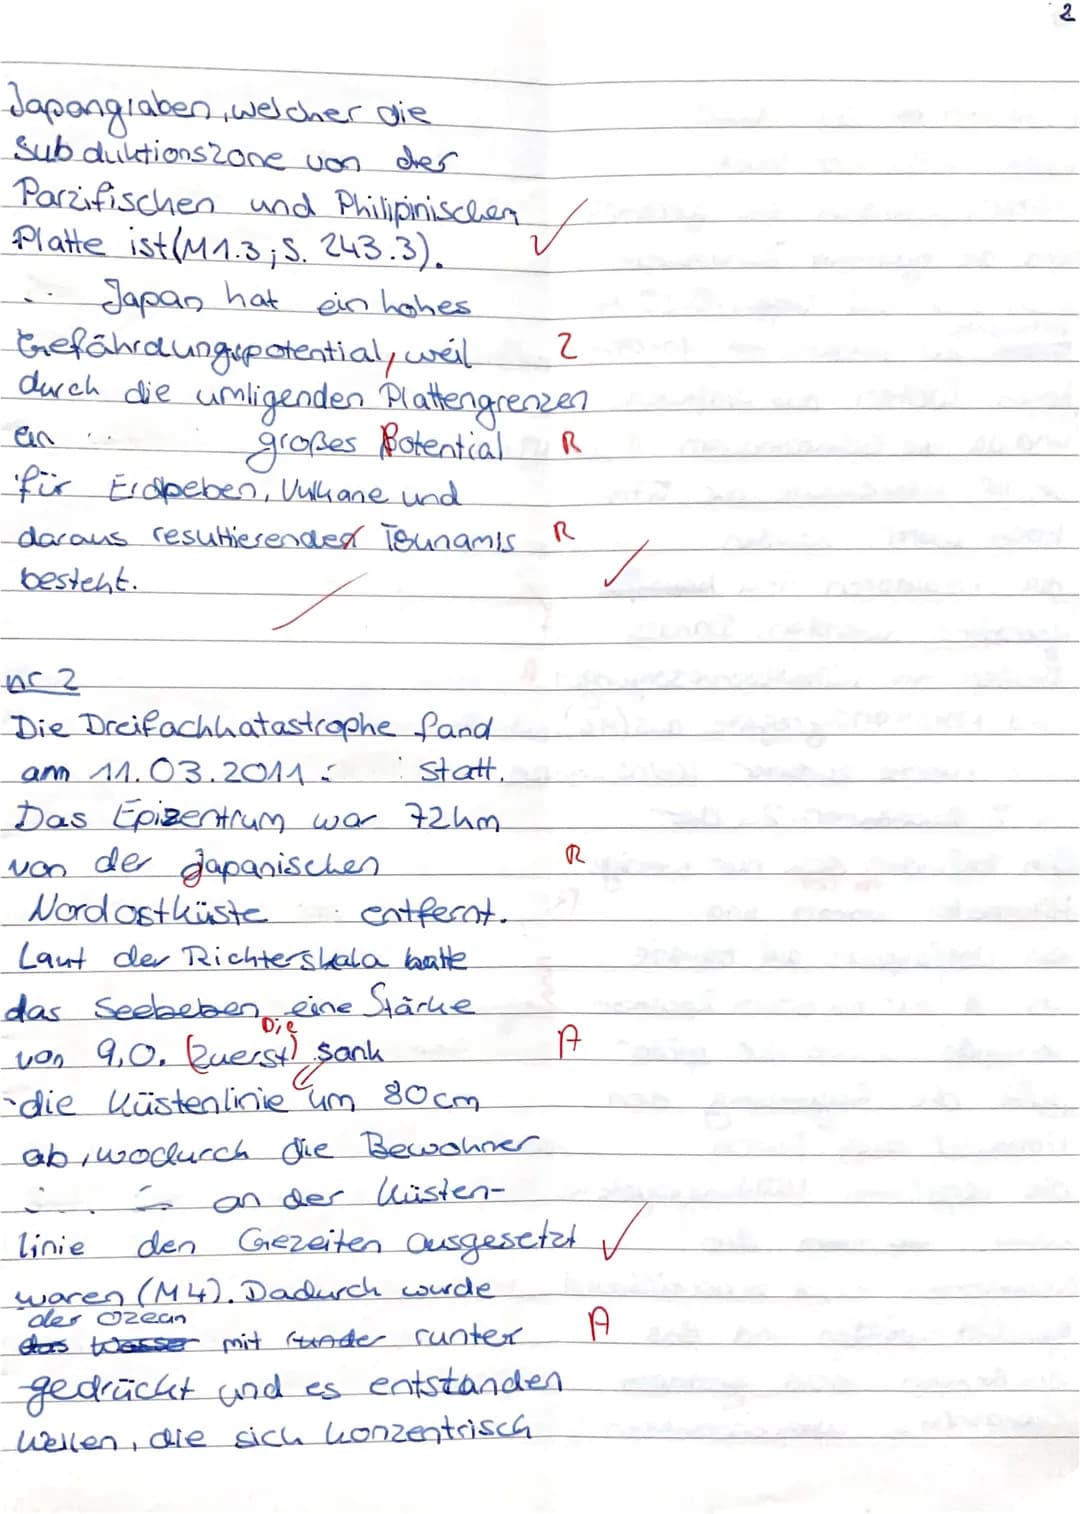 2
Japangraben, welcher die
Subduktionszone von der
Parzifischen und Philipinischen
Platte ist (M1.3; S. 243.3).
Japan hat ein hohes
Gefährdungspotential, weil Z
durch die umligenden Plattengrenzen
ein großes Potential R
für Erdbeben, Vulkane und
daraus resultierenden Tsunamis R
besteht.
nr 2
Die Dreifachkatastrophe fand
am 11.03.2011 statt.
Das Epizentrum war 72km
von der Japanischen R
Nordostküste entfernt.
Laut der Richterskala hatte
das Seebeben eine Stärke
Die
von 9,0. (Zuerst) sank A
die Küstenlinie um 80cm
ab, wodurch die Bewohner
an der Küsten-
linie den Gezeiten ausgesetzt
waren (M4). Dadurch wurde
der Ozean
das Wasser mit runter A
gedrückt und es entstanden
Wellen, die sich konzentrisch